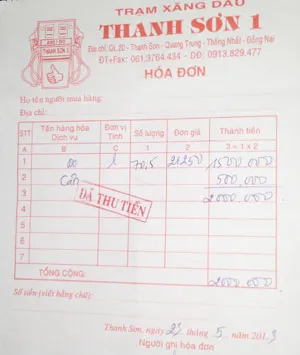 TRẠM XĂNG DẦU
THANH SƠN 1
Địa chỉ: QL.20 - Thanh Sơn - Quang Trung - Thống Nhất - Đồng Nai
ĐT+Fax: 061.3764.434 - DĐ: 0913.829.477
HÓA ĐƠN
THANH SƠN 1
Họ tên người mua hàng:
Địa chỉ:
STT Tên hàng hóa Dịch vụ Đơn vị Tính Số lượng Đơn giá Thành tiền
A B C 1 2 3 = 1 x 2
1 DO l 70,5 21250 1500.000
2 Cấn 500,000
3 2000.000
4
5
6
7
ĐÃ THU TIỀN
TỔNG CỘNG: 2000.000
Số tiền (viết bằng chữ):
Thanh Sơn, ngày 23 tháng 5 năm 2013
Người ghi hóa đơn